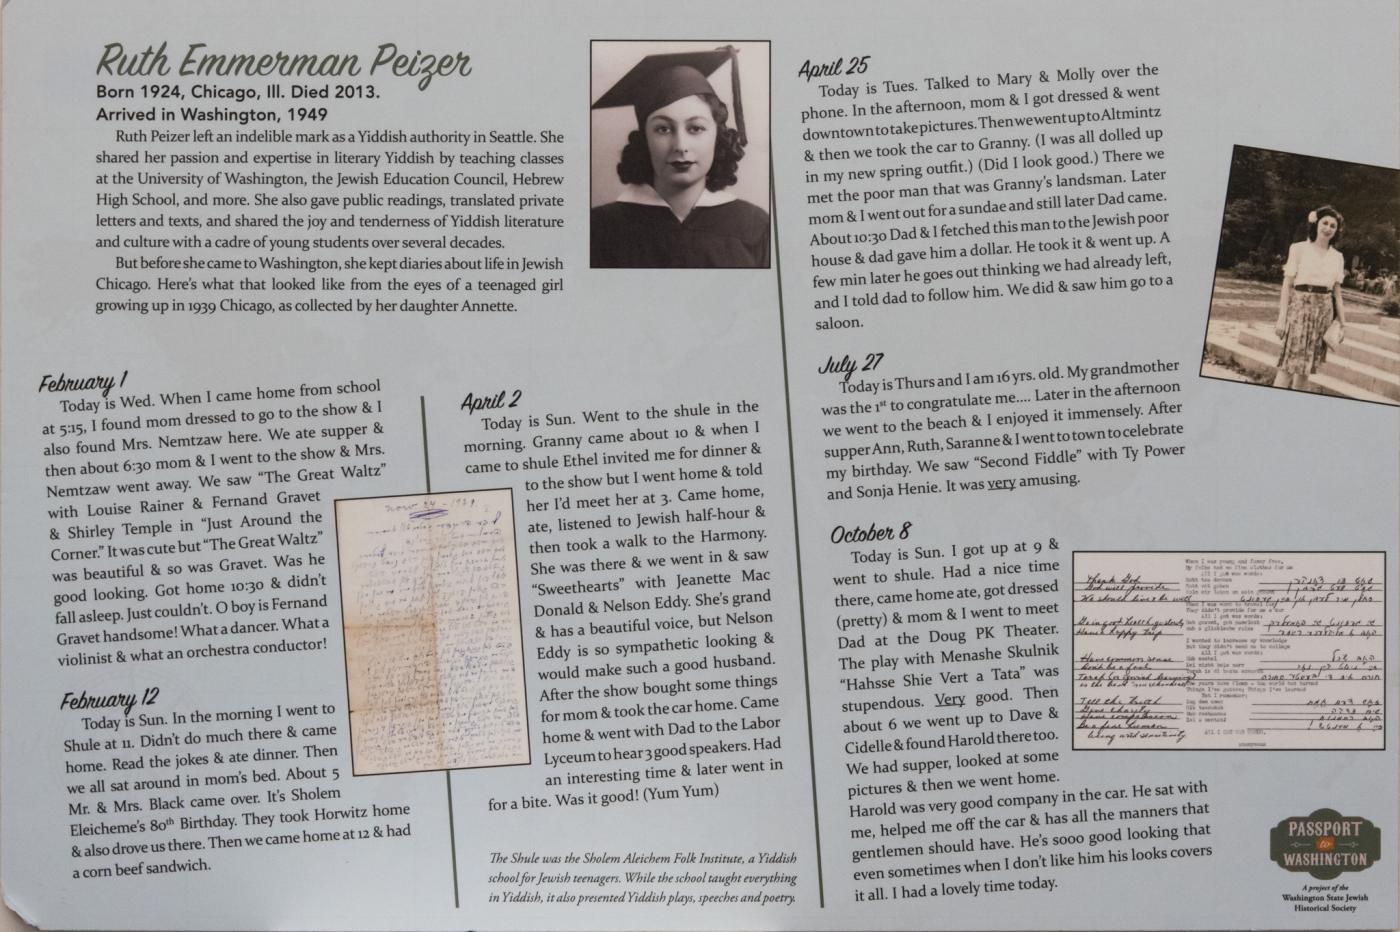 Ruth Emmerman Peizer
Born 1924, Chicago, Ill. Died 2013.
Arrived in Washington, 1949
Ruth Peizer left an indelible mark as a Yiddish authority in Seattle. She
shared her passion and expertise in literary Yiddish by teaching classes
at the University of Washington, the Jewish Education Council, Hebrew
High School, and more. She also gave public readings, translated private
letters and texts, and shared the joy and tenderness of Yiddish literature
and culture with a cadre of young students over several decades.
But before she came to Washington, she kept diaries about life in Jewish
Chicago. Here's what that looked like from the eyes of a teenaged girl
growing up in 1939 Chicago, as collected by her daughter Annette.
February 1
Today is Wed. When I came home from school
at 5:15, I found mom dressed to go to the show & I
also found Mrs. Nemtzaw here. We ate supper &
then about 6:30 mom & I went to the show & Mrs.
Nemtzaw went away. We saw "The Great Waltz"
with Louise Rainer & Fernand Gravet
& Shirley Temple in "Just Around the
Corner." It was cute but "The Great Waltz"
was beautiful & so was Gravet. Was he
good looking. Got home 10:30 & didn't
fall asleep. Just couldn't. O boy is Fernand
Gravet handsome! What a dancer. What a
violinist & what an orchestra conductor!
February 12
Today is Sun. In the morning I went to
Shule at 11. Didn't do much there & came
home. Read the jokes & ate dinner. Then
we all sat around in mom's bed. About 5
Mr. & Mrs. Black came over. It's Sholem
Eleicheme's 80th Birthday. They took Horwitz home
& also drove us there. Then we came home at 12 & had
a corn beef sandwich.
April 2
Today is Sun. Went to the shule in the
morning. Granny came about 10 & when I
came to shule Ethel invited me for dinner &
to the show but I went home & told
her I'd meet her at 3. Came home,
ate, listened to Jewish half-hour &
then took a walk to the Harmony.
She was there & we went in & saw
"Sweethearts" with Jeanette Mac
Donald & Nelson Eddy. She's grand
& has a beautiful voice, but Nelson
Eddy is so sympathetic looking &
would make such a good husband.
After the show bought some things
for mom & took the car home. Came
home & went with Dad to the Labor
Lyceum to hear 3 good speakers. Had
an interesting time & later went in
for a bite. Was it good! (Yum Yum)
The Shule was the Sholem Aleichem Folk Institute, a Yiddish
school for Jewish teenagers. While the school taught everything
in Yiddish, it also presented Yiddish plays, speeches and poetry.
April 25
Today is Tues. Talked to Mary & Molly over the
phone. In the afternoon, mom & I got dressed & went
downtown to take pictures. Then we went up to Altmintz
& then we took the car to Granny. (I was all dolled up
in my new spring outfit.) (Did I look good.) There we
met the poor man that was Granny's landsman. Later
mom & I went out for a sundae and still later Dad came.
About 10:30 Dad & I fetched this man to the Jewish poor
house & dad gave him a dollar. He took it & went up. A
few min later he goes out thinking we had already left,
and I told dad to follow him. We did & saw him go to a
saloon.
July 27
Today is Thurs and I am 16 yrs. old. My grandmother
was the 1st to congratulate me.... Later in the afternoon
we went to the beach & I enjoyed it immensely. After
supper Ann, Ruth, Saranne & I went to town to celebrate
my birthday. We saw "Second Fiddle" with Ty Power
and Sonja Henie. It was very amusing.
October 8
Today is Sun. I got up at 9 &
went to shule. Had a nice time
there, came home ate, got dressed
(pretty) & mom & I went to meet
Dad at the Doug PK Theater.
The play with Menashe Skulnik
"Hahsse Shie Vert a Tata" was
stupendous. Very good. Then
about 6 we went up to Dave &
Cidelle & found Harold there too.
We had supper, looked at some
pictures & then we went home.
Harold was very good company in the car. He sat with
me, helped me off the car & has all the manners that
gentlemen should have. He's sooo good looking that
even sometimes when I don't like him his looks covers
it all. I had a lovely time today.
When I was young and fancy free,
All I got was words:
Thank God
God will provide
I wanted to increase my knowledge
But they didn't send me to college
All I got was words:
Have common sense
Don't be a fool
Things I've gotten; Things I've learned
But I remember:
Tell the truth
Give charity
Have compassion
anonymous
PASSPORT
to
WASHINGTON
A project of the
Washington State Jewish
Historical Society